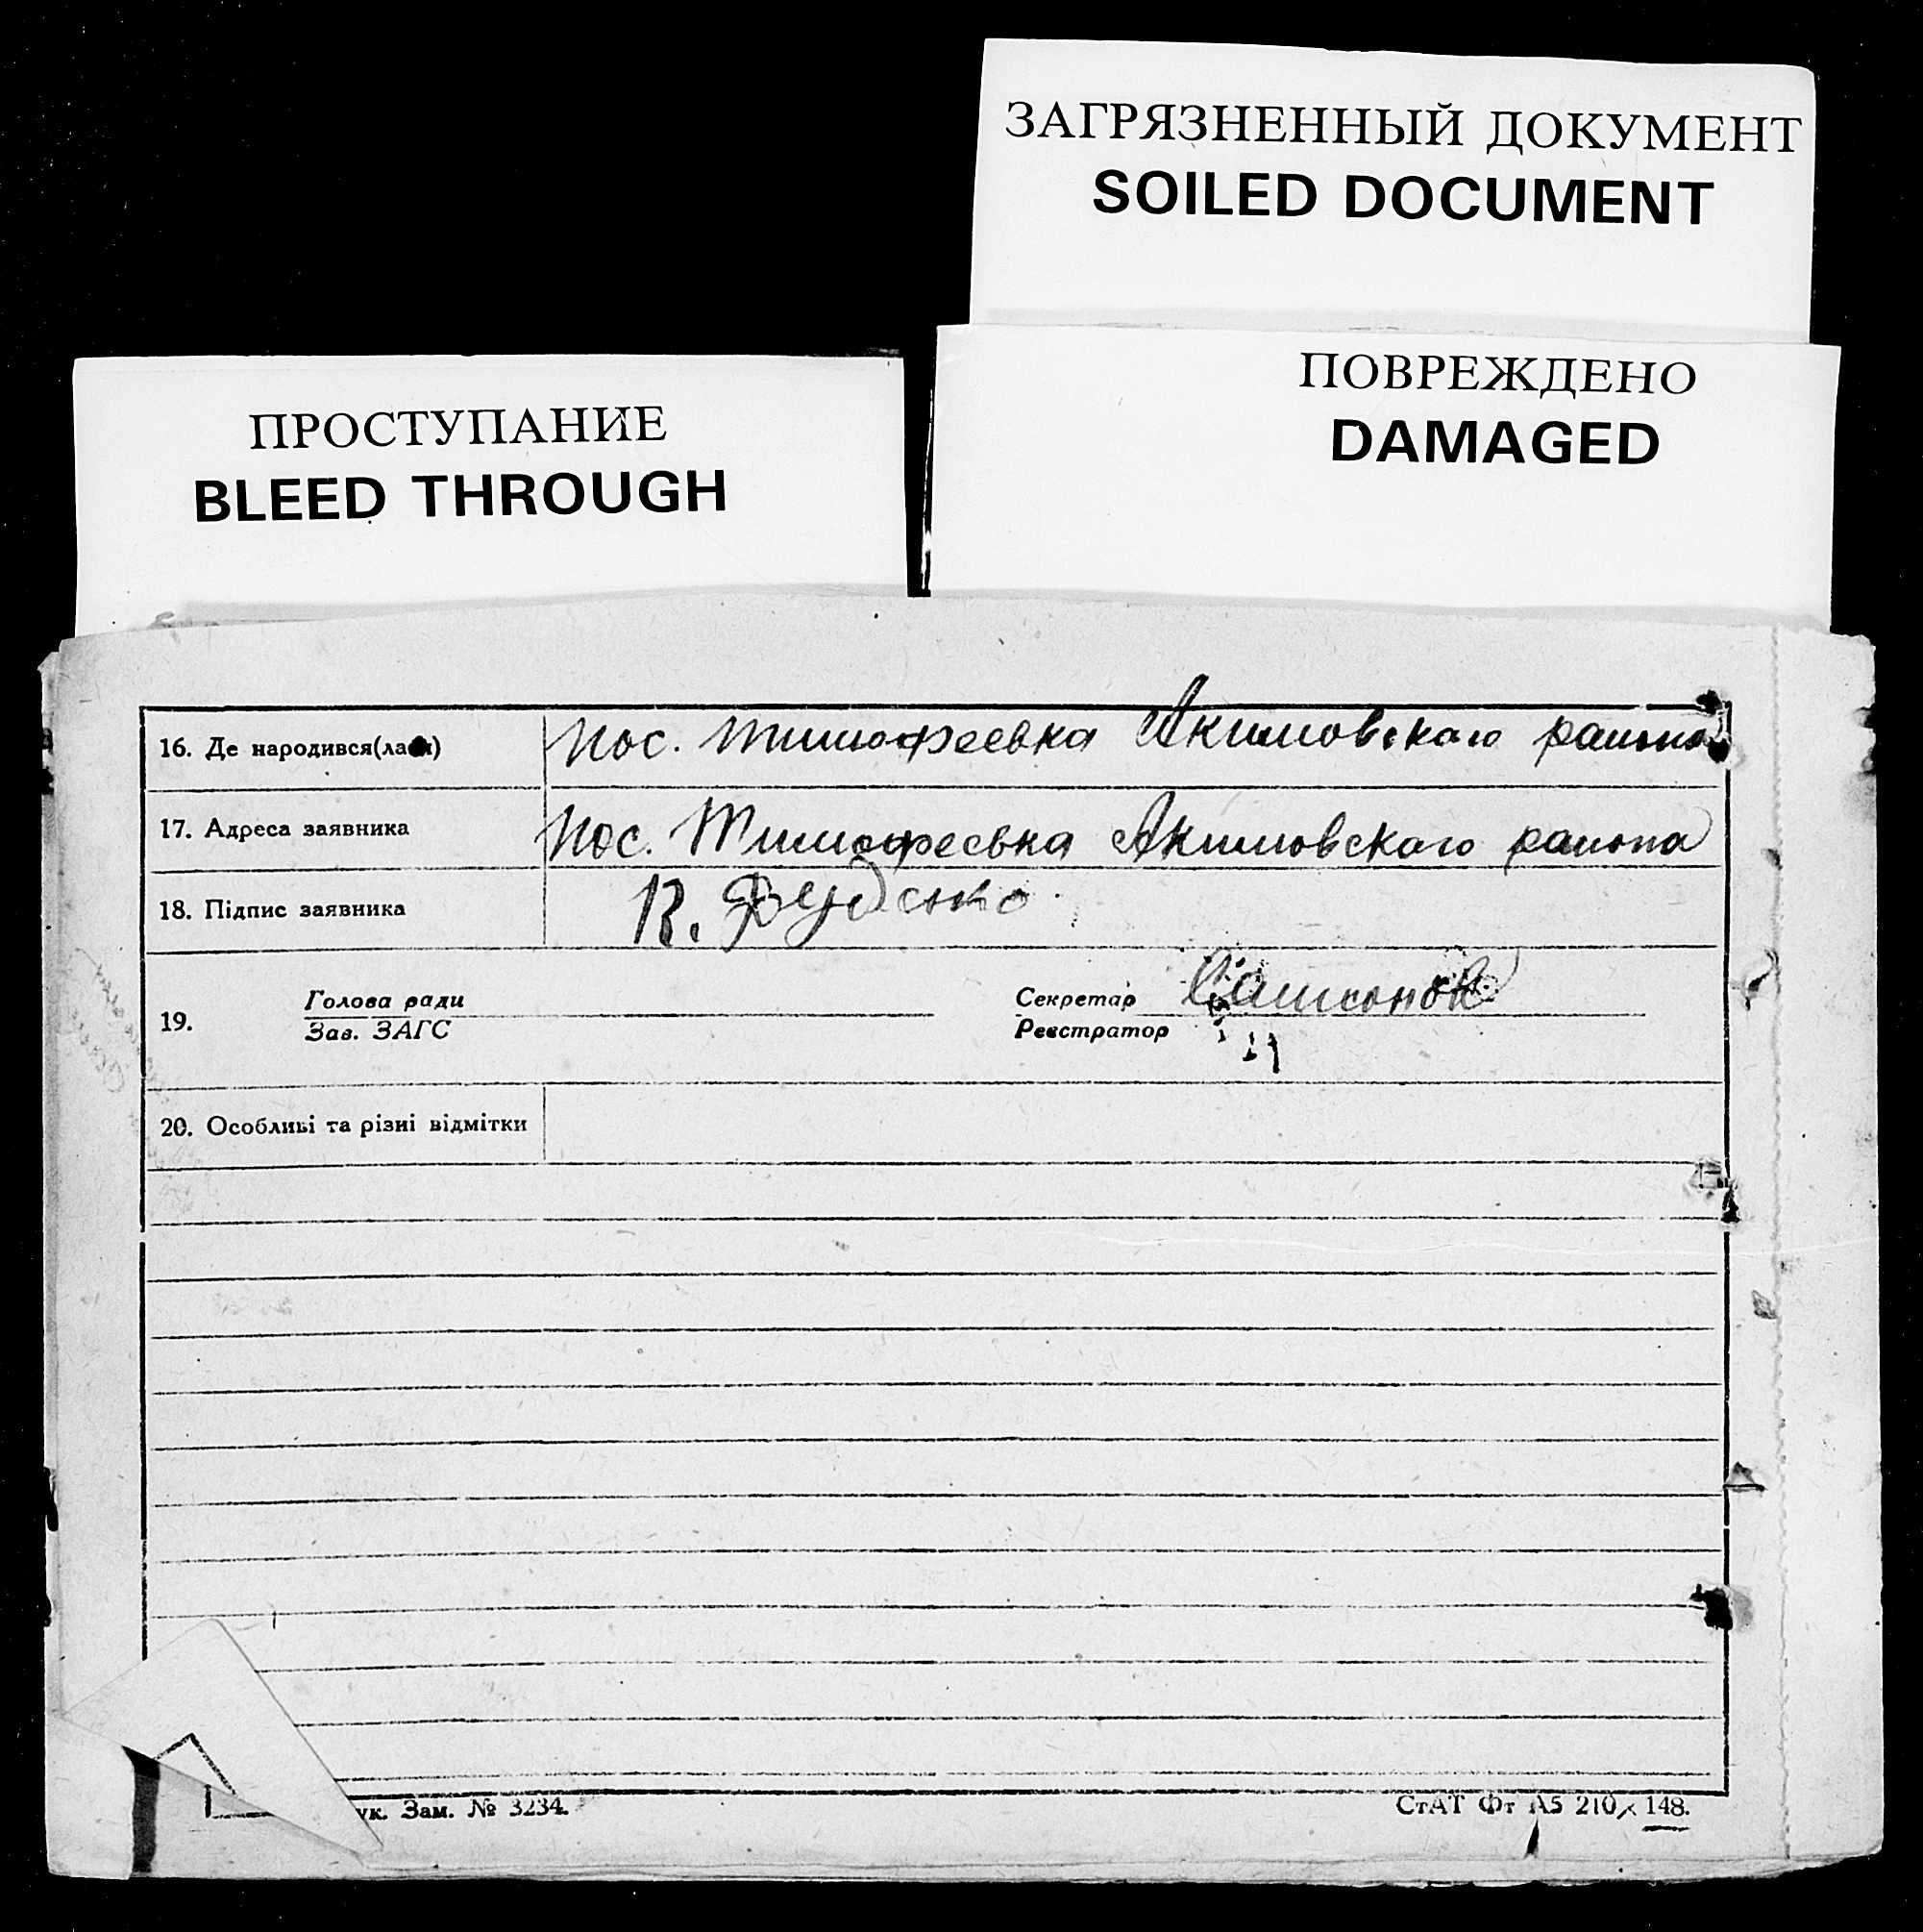 ЗАГРЯЗНЕННЫЙ ДОКУМЕНТ
SOILED DOCUMENT
ПОВРЕЖДЕНО
DAMAGED
ПРОСТУПАНИЕ
BLEED THROUGH
16. Де народився(лася) пос. Тимофеевка Акимовского района
17. Адреса заявника пос. Тимофеевка Акимовского района
18. Підпис заявника
19. Голова ради
Зав. ЗАГС
Секретар
Реєстратор
20. Особливі та різні відмітки
ук. Зам. № 3234.
СтАТ Фт А5 210 × 148.